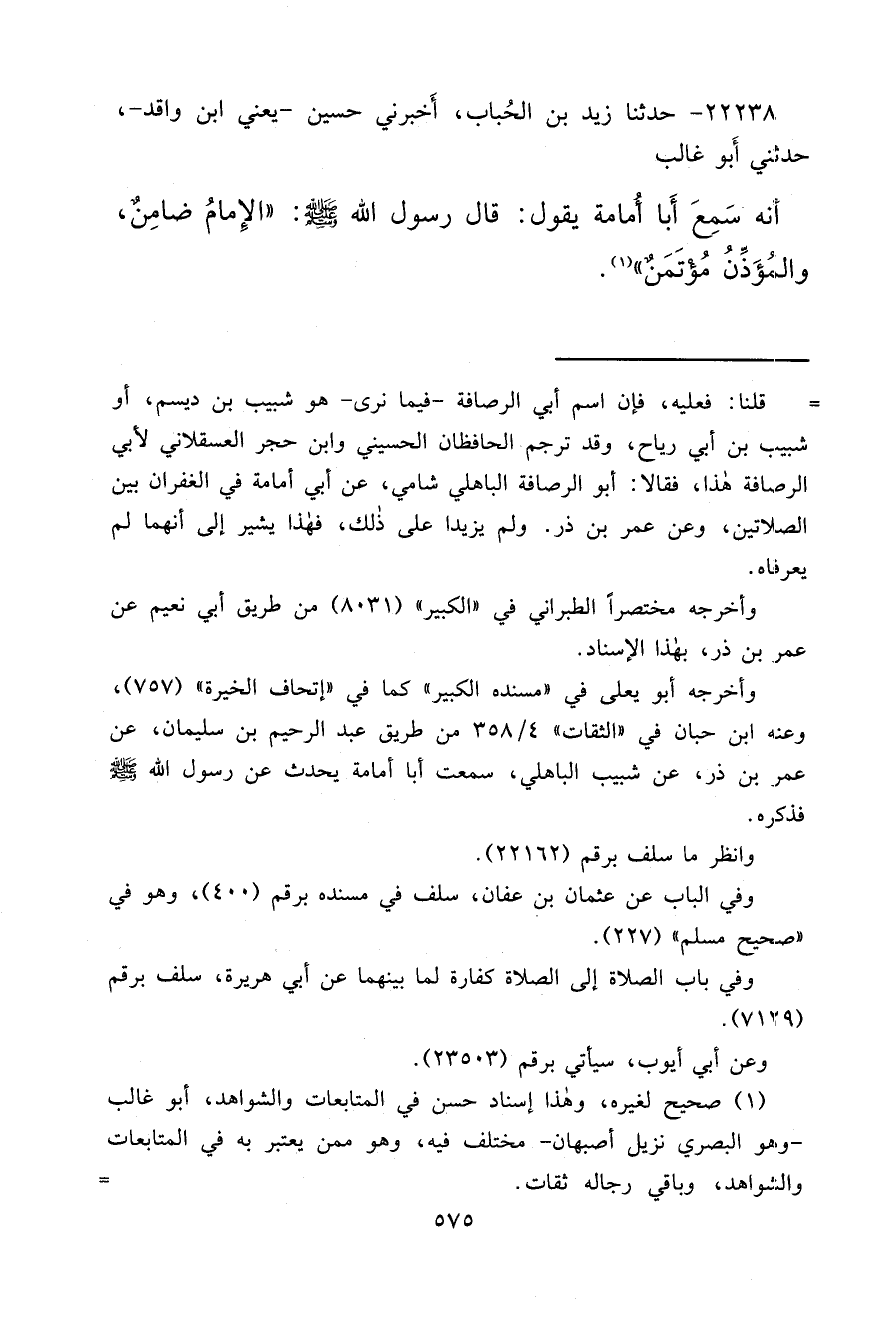 ٢٢٢٣٨- حدثنا زيد بن الحُباب، أَخبرني حسين -يعني ابن واقد-،
حدثني أَبو غالب
أنه سَمِعَ أَبا أُمامة يقول: قال رسول الله ﷺ: «الإِمامُ ضامِنٌ،
والمُؤَذِّنُ مُؤْتَمَنٌ»(١).
= قلنا: فعليه، فإن اسم أبي الرصافة -فيما نرى- هو شبيب بن ديسم، أو
شبيب بن أبي رياح، وقد ترجم الحافظان الحسيني وابن حجر العسقلاني لأبي
الرصافة هٰذا، فقالا: أبو الرصافة الباهلي شامي، عن أبي أمامة في الغفران بين
الصلاتين، وعن عمر بن ذر. ولم يزيدا على ذٰلك، فهٰذا يشير إلى أنهما لم
يعرفاه.
وأخرجه مختصراً الطبراني في «الكبير» (٨٠٣١) من طريق أبي نعيم عن
عمر بن ذر، بهٰذا الإسناد.
وأخرجه أبو يعلى في «مسنده الكبير» كما في «إتحاف الخيرة» (٧٥٧)،
وعنه ابن حبان في «الثقات» ٣٥٨/٤ من طريق عبد الرحيم بن سليمان، عن
عمر بن ذر، عن شبيب الباهلي، سمعت أبا أمامة يحدث عن رسول الله ﷺ
فذكره.
وانظر ما سلف برقم (٢٢١٦٢).
وفي الباب عن عثمان بن عفان، سلف في مسنده برقم (٤٠٠)، وهو في
«صحيح مسلم» (٢٢٧).
وفي باب الصلاة إلى الصلاة كفارة لما بينهما عن أبي هريرة، سلف برقم
(٧١٢٩).
وعن أبي أيوب، سيأتي برقم (٢٣٥٠٣).
(١) صحيح لغيره، وهٰذا إسناد حسن في المتابعات والشواهد، أبو غالب
-وهو البصري نزيل أصبهان- مختلف فيه، وهو ممن يعتبر به في المتابعات
والشواهد، وباقي رجاله ثقات. =
٥٧٥